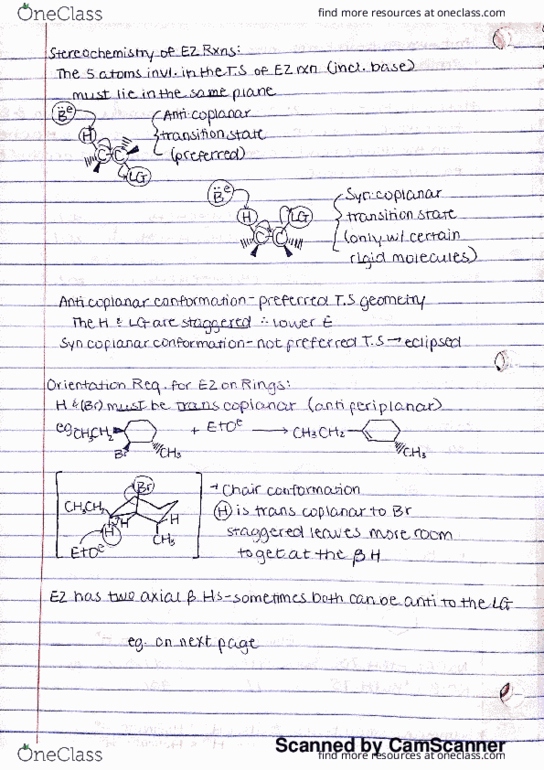 OneClass
find more resources at oneclass.com
Stereochemistry of E2 Rxns:
The 5 atoms invl. in the T.S of E2 rxn (incl. base)
must lie in the same plane
B:⊖
H
C C
LG
Anti-coplanar
transition state
(preferred)
B:⊖
H
LG
C C
Syn-coplanar
transition state
(only w/ certain
rigid molecules)
Anti coplanar conformation - preferred T.S geometry
The H & LG are staggered ∴ lower E
Syn coplanar conformation - not preferred T.S → eclipsed
Orientation Req. for E2 on Rings:
H & (Br) must be trans coplanar (antiperiplanar)
eg CH3CH2 + EtO⊖ → CH3CH2
Br CH3 CH3
Br
CH3CH2
H H H
CH3
EtO⊖
→ Chair conformation
H is trans coplanar to Br
staggered leaves more room
to get at the β H
E2 has two axial β Hs - sometimes both can be anti to the LG
eg. on next page
Scanned by CamScanner
OneClass
find more resources at oneclass.com